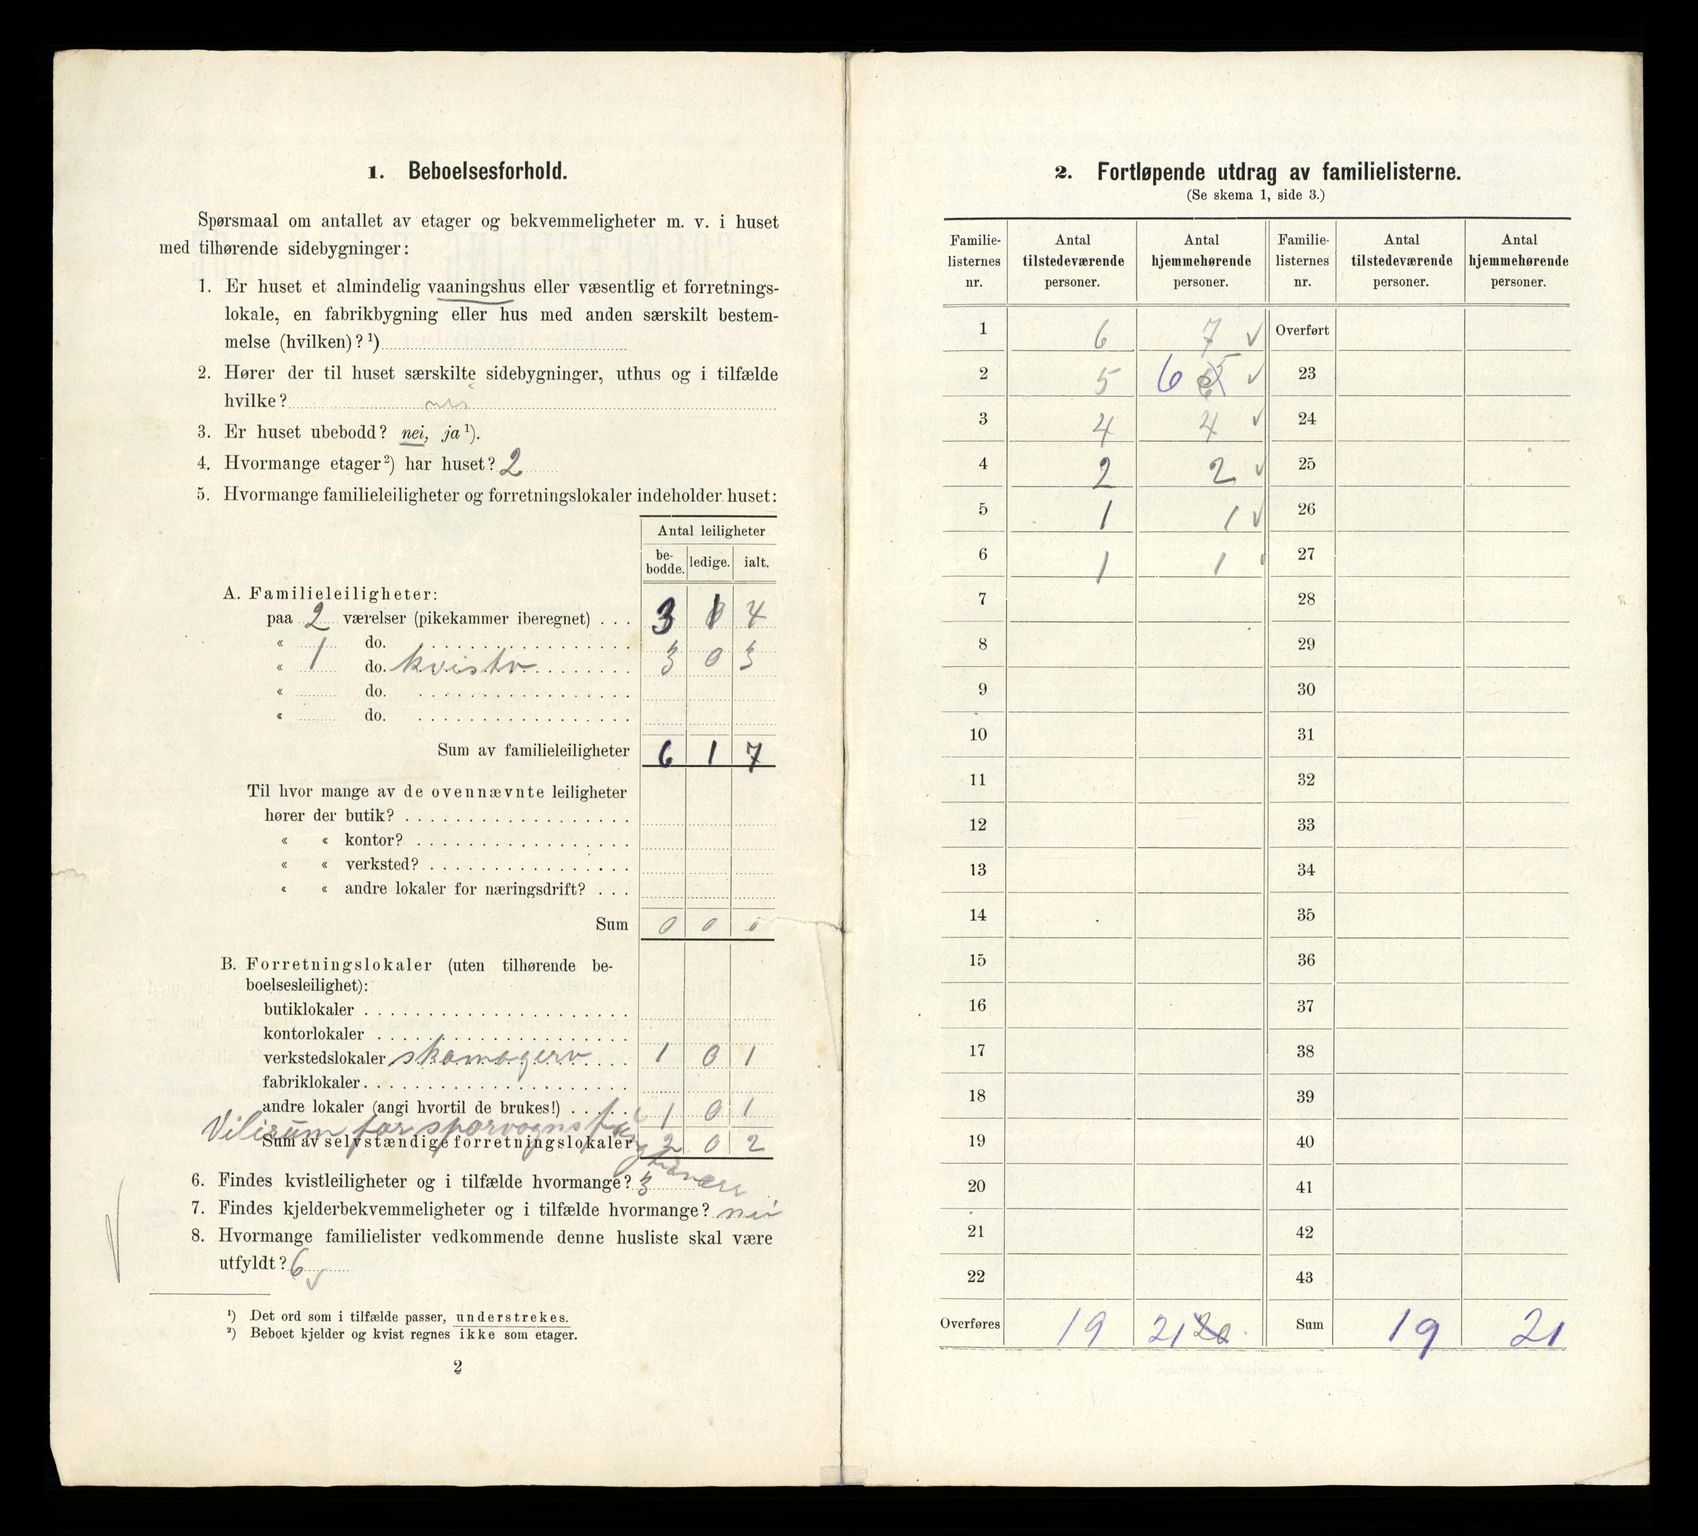 1. Beboelsesforhold.
Spørsmaal om antallet av etager og bekvemmeligheter m. v. i huset
med tilhørende sidebygninger:
1. Er huset et almindelig vaaningshus eller væsentlig et forretnings-
lokale, en fabrikbygning eller hus med anden særskilt bestem-
melse (hvilken)? ¹)
2. Hører der til huset særskilte sidebygninger, uthus og i tilfælde
hvilke?
3. Er huset ubebodd? nei, ja ¹).
4. Hvormange etager ²) har huset? 2
5. Hvormange familieleiligheter og forretningslokaler indeholder huset:
Antal leiligheter
be-bodde. ledige. ialt.
A. Familieleiligheter:
paa 2 værelser (pikekammer iberegnet) . . . 3 1 4
« do.
« 1 do. kvistv 3 0 3
« do.
« do.
Sum av familieleiligheter 6 1 7
Til hvor mange av de ovennævnte leiligheter
hører der butik?
« « kontor?
« « verksted?
« « andre lokaler for næringsdrift? . . .
Sum 0 0 0
B. Forretningslokaler (uten tilhørende be-
boelsesleilighet):
butiklokaler
kontorlokaler
verkstedslokaler skomagerv 1 0 1
fabriklokaler
andre lokaler (angi hvortil de brukes!) 1 0 1
for sporvogns
Sum av selvstændige forretningslokaler 2 0 2
6. Findes kvistleiligheter og i tilfælde hvormange? 3
7. Findes kjelderbekvemmeligheter og i tilfælde hvormange? nei
8. Hvormange familielister vedkommende denne husliste skal være
utfyldt? 6
¹) Det ord som i tilfælde passer, understrekes.
²) Beboet kjelder og kvist regnes ikke som etager.
2
2. Fortløpende utdrag av familielisterne.
(Se skema 1, side 3.)
Familie-listernes nr. Antal tilstedeværende personer. Antal hjemmehørende personer. Familie-listernes nr. Antal tilstedeværende personer. Antal hjemmehørende personer.
1 6 7 ✓ Overført
2 5 6 5 ✓ 23
3 4 4 ✓ 24
4 2 2 ✓ 25
5 1 1 ✓ 26
6 1 1 27
7 28
8 29
9 30
10 31
11 32
12 33
13 34
14 35
15 36
16 37
17 38
18 39
19 40
20 41
21 42
22 43
Overføres 19 21 20 Sum 19 21